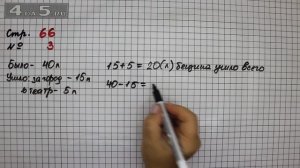 4APOK.RU
Стр. 66
№ 3
Было - 40л
Ушло: за город - 15л
в театр - 5л
15+5=20(л) бензина ушло всего
40-15=